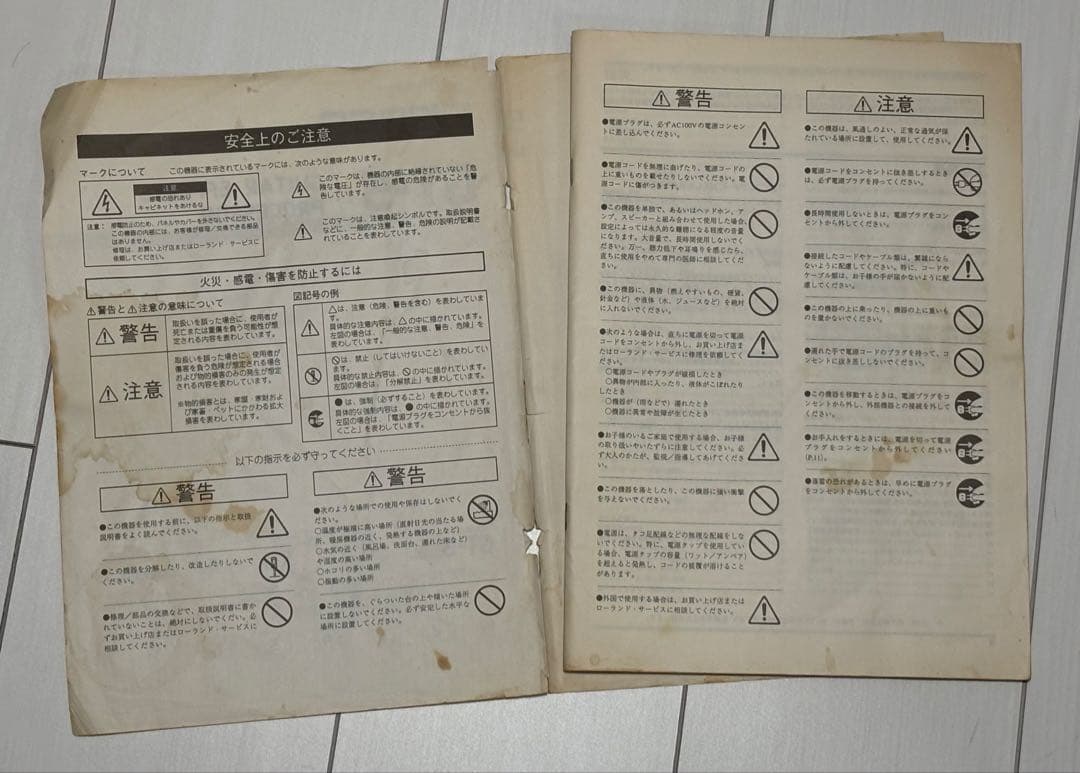 安全上のご注意
マークについて　この機器に表示されているマークには、次のような意味があります。
注意
感電の恐れあり
キャビネットをあけるな
注意： 感電防止のため、パネルやカバーを外さないでください。
この機器の内部には、お客様が修理／交換できる部品
はありません。
修理は、お買い上げ店またはローランド・サービスに
依頼してください。
このマークは、機器の内部に絶縁されていない「危
険な電圧」が存在し、感電の危険があることを警
告しています。
このマークは、注意喚起シンボルです。取扱説明書
などに、一般的な注意、警告、危険の説明が記載さ
れていることを表わしています。
火災・感電・傷害を防止するには
⚠警告と⚠注意の意味について
⚠警告
取扱いを誤った場合に、使用者が
死亡または重傷を負う可能性が想
定される内容を表わしています。
⚠注意
取扱いを誤った場合に、使用者が
傷害を負う危険が想定される場合
および物的損害のみの発生が想定
される内容を表わしています。
※物的損害とは、家屋・家財およ
び家畜・ペットにかかわる拡大
損害を表わしています。
図記号の例
△は、注意（危険、警告を含む）を表わしていま
す。
具体的な注意内容は、△の中に描かれています。
左図の場合は、「一般的な注意、警告、危険」を
表わしています。
🚫は、禁止（してはいけないこと）を表わしてい
ます。
具体的な禁止内容は、🚫の中に描かれています。
左図の場合は、「分解禁止」を表わしています。
●は、強制（必ずすること）を表わしています。
具体的な強制内容は、●の中に描かれています。
左図の場合は、「電源プラグをコンセントから抜
くこと」を表わしています。
以下の指示を必ず守ってください
⚠警告
●この機器を使用する前に、以下の指示と取扱
説明書をよく読んでください。
●この機器を分解したり、改造したりしないで
ください。
●修理／部品の交換などで、取扱説明書に書か
れていないことは、絶対にしないでください。必
ずお買い上げ店またはローランド・サービスに
相談してください。
⚠警告
●次のような場所での使用や保存はしないでく
ださい。
○温度が極端に高い場所（直射日光の当たる場
所、暖房機器の近く、発熱する機器の上など）
○水気の近く（風呂場、洗面台、濡れた床など）
や湿度の高い場所
○ホコリの多い場所
○振動の多い場所
●この機器を、ぐらついた台の上や傾いた場所
に設置しないでください。必ず安定した水平な
場所に設置してください。
⚠警告
●電源プラグは、必ずAC100Vの電源コンセン
トに差し込んでください。
●電源コードを無理に曲げたり、電源コードの
上に重いものを載せたりしないでください。電
源コードに傷がつきます。
●この機器を単独で、あるいはヘッドホン、ア
ンプ、スピーカーと組み合わせて使用した場合、
設定によっては永久的な難聴になる程度の音量
になります。大音量で、長時間使用しないでく
ださい。万一、聴力低下や耳鳴りを感じたら、
直ちに使用をやめて専門の医師に相談してくだ
さい。
●この機器に、異物（燃えやすいもの、硬貨、
針金など）や液体（水、ジュースなど）を絶対
に入れないでください。
●次のような場合は、直ちに電源を切って電源
コードをコンセントから外し、お買い上げ店ま
たはローランド・サービスに修理を依頼してく
ださい。
○電源コードやプラグが破損したとき
○異物が内部に入ったり、液体がこぼれたり
したとき
○機器が（雨などで）濡れたとき
○機器に異常や故障が生じたとき
●お子様のいるご家庭で使用する場合、お子様
の取り扱いやいたずらに注意してください。必
ず大人のかたが、監視／指導してあげてくださ
い。
●この機器を落としたり、この機器に強い衝撃
を与えないでください。
●電源は、タコ足配線などの無理な配線をしな
いでください。特に、電源タップを使用してい
る場合、電源タップの容量（ワット／アンペア）
を超えると発熱し、コードの被覆が溶けること
があります。
●外国で使用する場合は、お買い上げ店または
ローランド・サービスに相談してください。
⚠注意
●この機器は、風通しのよい、正常な通気が保
たれている場所に設置して、使用してください。
●電源コードをコンセントに抜き差しするとき
は、必ず電源プラグを持ってください。
●長時間使用しないときは、電源プラグをコン
セントから外してください。
●接続したコードやケーブル類は、繁雑になら
ないように配慮してください。特に、コードや
ケーブル類は、お子様の手が届かないように配
慮してください。
●この機器の上に乗ったり、機器の上に重いも
のを置かないでください。
●濡れた手で電源コードのプラグを持って、コ
ンセントに抜き差ししないでください。
●この機器を移動するときは、電源プラグをコ
ンセントから外し、外部機器との接続を外して
ください。
●お手入れをするときには、電源を切って電源
プラグをコンセントから外してください
(P.11)。
●落雷の恐れがあるときは、早めに電源プラグ
をコンセントから外してください。